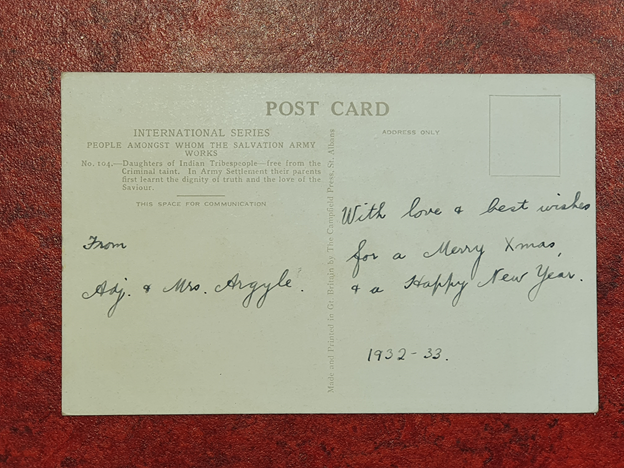 POST CARD
INTERNATIONAL SERIES
PEOPLE AMONGST WHOM THE SALVATION ARMY
WORKS
No. 104.—Daughters of Indian Tribespeople—free from the
Criminal taint. In Army Settlement their parents
first learnt the dignity of truth and the love of the
Saviour.
THIS SPACE FOR COMMUNICATION
From
Adj. & Mrs. Argyle.
Made and Printed in Gt. Britain by The Campfield Press, St. Albans
ADDRESS ONLY
With love & best wishes
for a Merry Xmas,
& a Happy New Year.
1932-33.